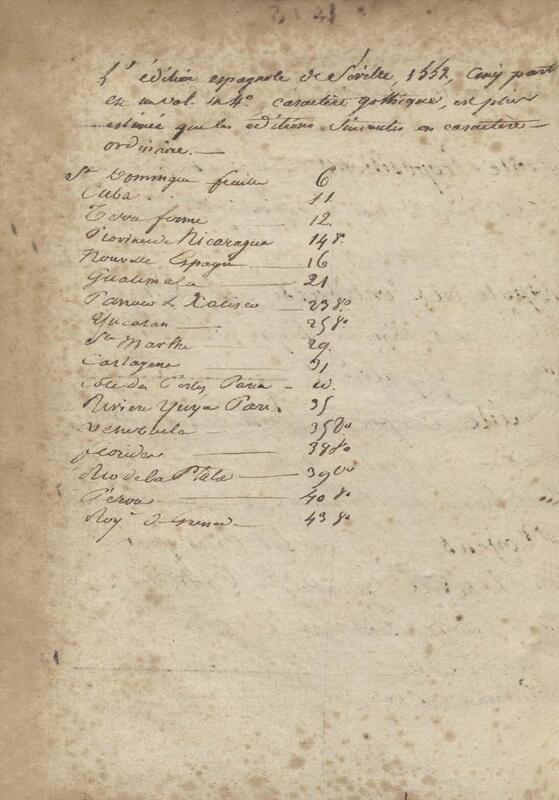 L'édition espagnole de Séville, 1552, Cinq part
en un vol. in 4°, caractère gothique, est plus
estimée que les éditions suivantes en caractère
ordinaire. —
St Domingue feuille 6
Cuba 11
Terra ferme 12
Province de Nicaragua 14 v°
Nouvelle Espagne 16
Guatimala 21
Panuco & Xalisco 23 v°
Yucatan 25 v°
Ste Marthe 29.
Cartagene 31
Côte des Perles, Paria - id.
Riviere Yuya Pari. 35
Venezuela 35 v°
floride 38 v°
Rio de la Plata 39 v°
Pérou 40 v°
Roy. de Grenade 43 v°